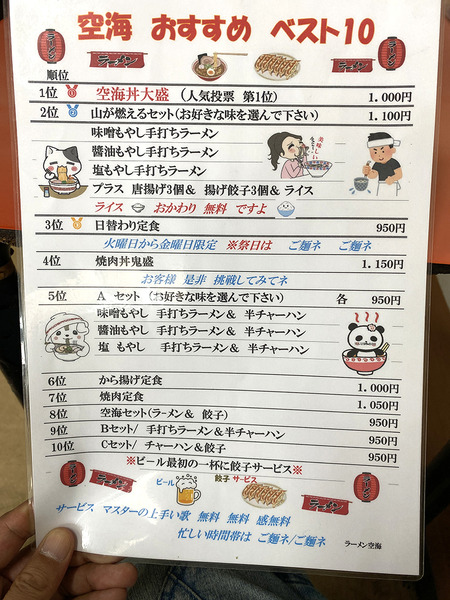 空海 おすすめ ベスト10
ラーメン
ラーメン
ラーメン
ラーメン
順位
1位 空海丼大盛 (人気投票 第1位) 1.000円
2位 山が燃えるセット(お好きな味を選んで下さい) 1.100円
味噌もやし手打ちラーメン
醤油もやし手打ちラーメン
塩もやし手打ちラーメン
プラス 唐揚げ3個& 揚げ餃子3個& ライス
ライス おかわり 無料 ですよ
3位 日替わり定食 950円
火曜日から金曜日限定 ※祭日は ご麺ネ ご麺ネ
4位 焼肉丼鬼盛 1.150円
お客様 是非 挑戦してみてネ
5位 A セット (お好きな味を選んで下さい) 各 950円
味噌もやし 手打ちラーメン& 半チャーハン
醤油もやし 手打ちラーメン& 半チャーハン
塩 もやし 手打ちラーメン& 半チャーハン
6位 から揚げ定食 1.000円
7位 焼肉定食 1.050円
8位 空海セット(ラーメン& 餃子) 950円
9位 Bセット/ 手打ちラーメン&半チャーハン 950円
10位 Cセット/ チャーハン&餃子 950円
※ビール最初の一杯に餃子サービス※
ラーメン
ラーメン
ビール
餃子 サービス
ラーメン
ラーメン
サービス マスターの上手い歌 無料 無料 感無料
忙しい時間帯は ご麺ネ/ご麺ネ
ラーメン空海